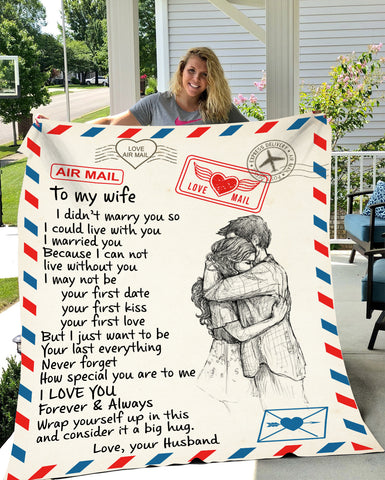 LOVE
AIR MAIL
AIR MAIL
LOVE MAIL
To my wife
I didn't marry you so
I could live with you
I married you
Because I can not
live without you
I may not be
your first date
your first kiss
your first love
But I just want to be
Your last everything
Never forget
How special you are to me
I LOVE YOU
Forever & Always
Wrap yourself up in this
and consider it a big hug.
Love, your Husband